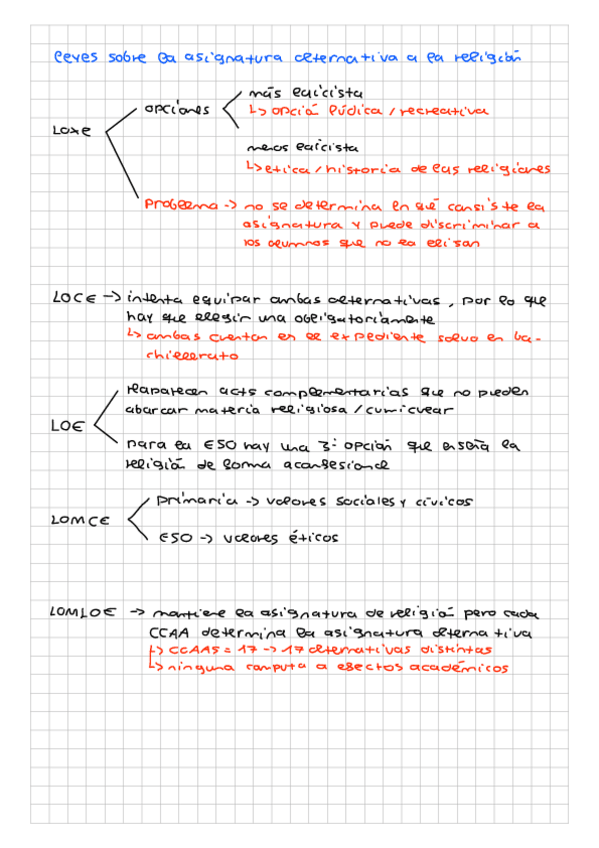 leyes sobre la asignatura alternativa a la religión
más laicista
opciones
↳ opción lúdica / recreativa
LOXE
menos laicista
↳ etica / historia de las religiones
Problema -> no se determina en qué consiste la
asignatura y puede discriminar a
los alumnos que no la elijan
LOCE -> intenta equipar ambas alternativas, por lo que
hay que elegir una obligatoriamente
↳ ambas cuentan en el expediente salvo en ba-
chillerato
reaparecen acts complementarias que no pueden
abarcar materia religiosa / curricular
LOE
para la ESO hay una 3ª opción que enseña la
religión de forma aconfesional
primaria -> valores sociales y cívicos
LOMCE
ESO -> valores éticos
LOMLOE -> mantiene la asignatura de religión pero cada
CCAA determina la asignatura alternativa
↳ CCAAS = 17 -> 17 alternativas distintas
↳ ninguna computa a efectos académicos